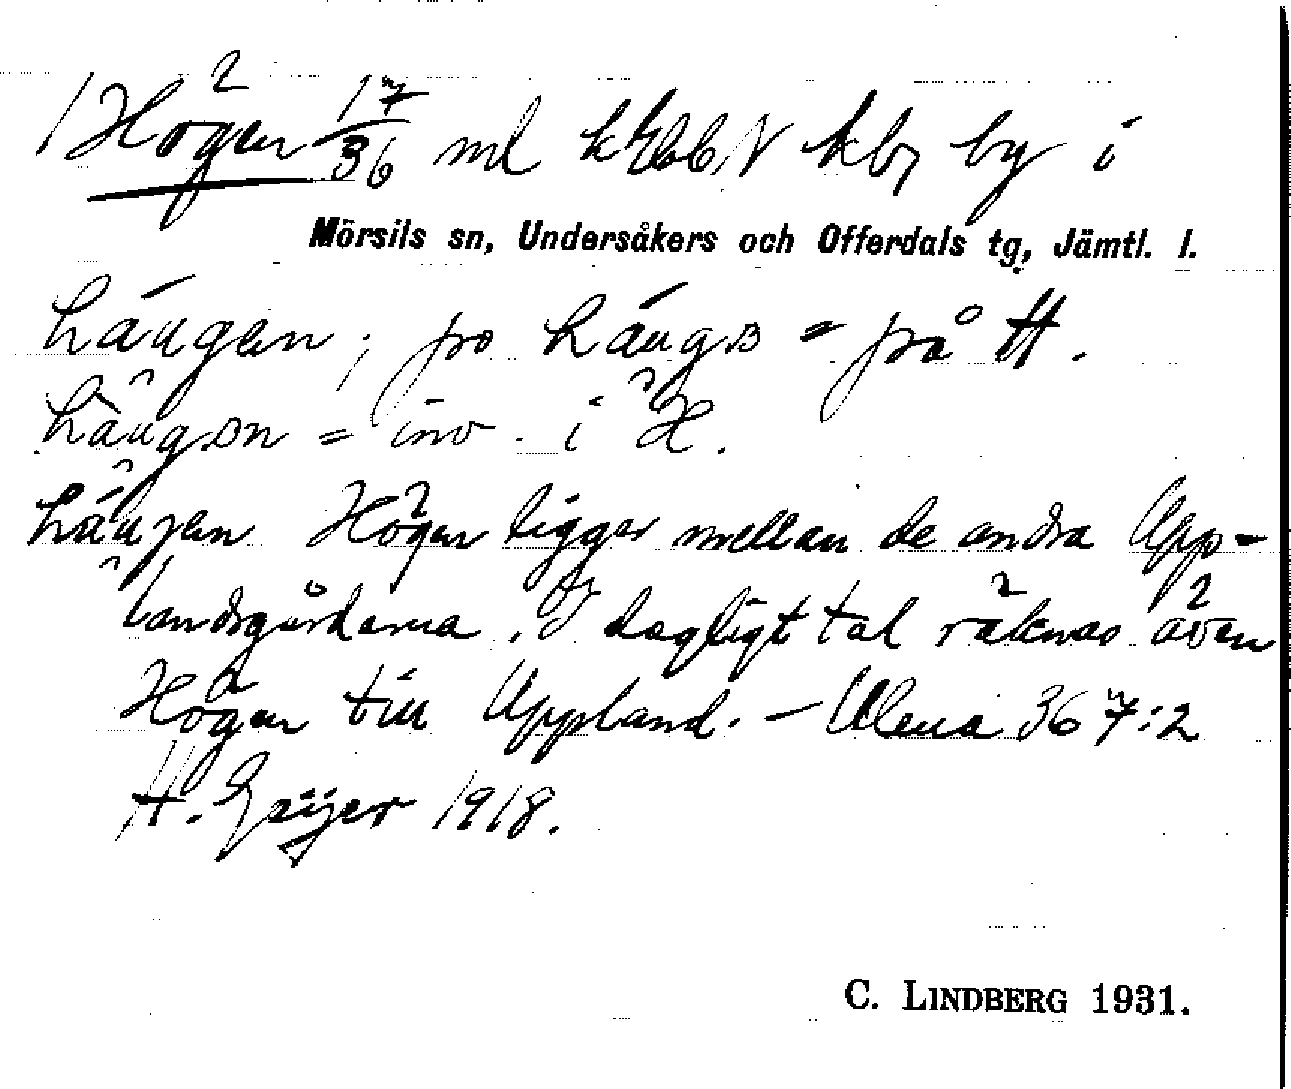 Högen 17/36 ml k N kby by i
Mörsils sn, Undersåkers och Offerdals tg, Jämtl. l.
häugen; po häugɞ = på H.
häugɞn = inv. i H.
häugen Högen ligger mellan de andra Upp-
landsgårdarna. I dagligt tal räknas även
Högen till Uppland. – Ulma 367:2
H. Geijer 1918.
C. LINDBERG 1931.